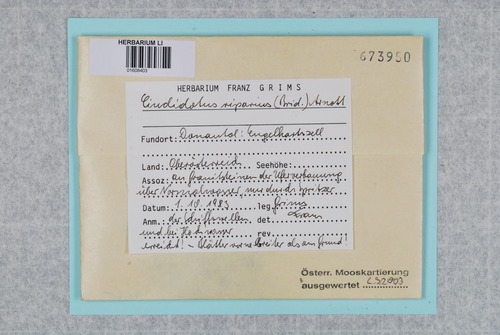 HERBARIUM LI
01606403
673950
HERBARIUM FRANZ GRIMS
Cinclidotus riparius (Brid.) Arnott
Fundort: Donautal: Engelhartszell
Land: Oberösterreich Seehöhe:
Assoz: an Granitsteinen der Uferverbauung
über Normalwasser, nur durch Spritzer
Datum: 1. 10. 1983 leg. Grims
Anm.: der Schiffswellen det Franz
und bei Hochwasser rev
erreicht! - Blätter vorne breiter als am Grund!
Österr. Mooskartierung
ausgewertet